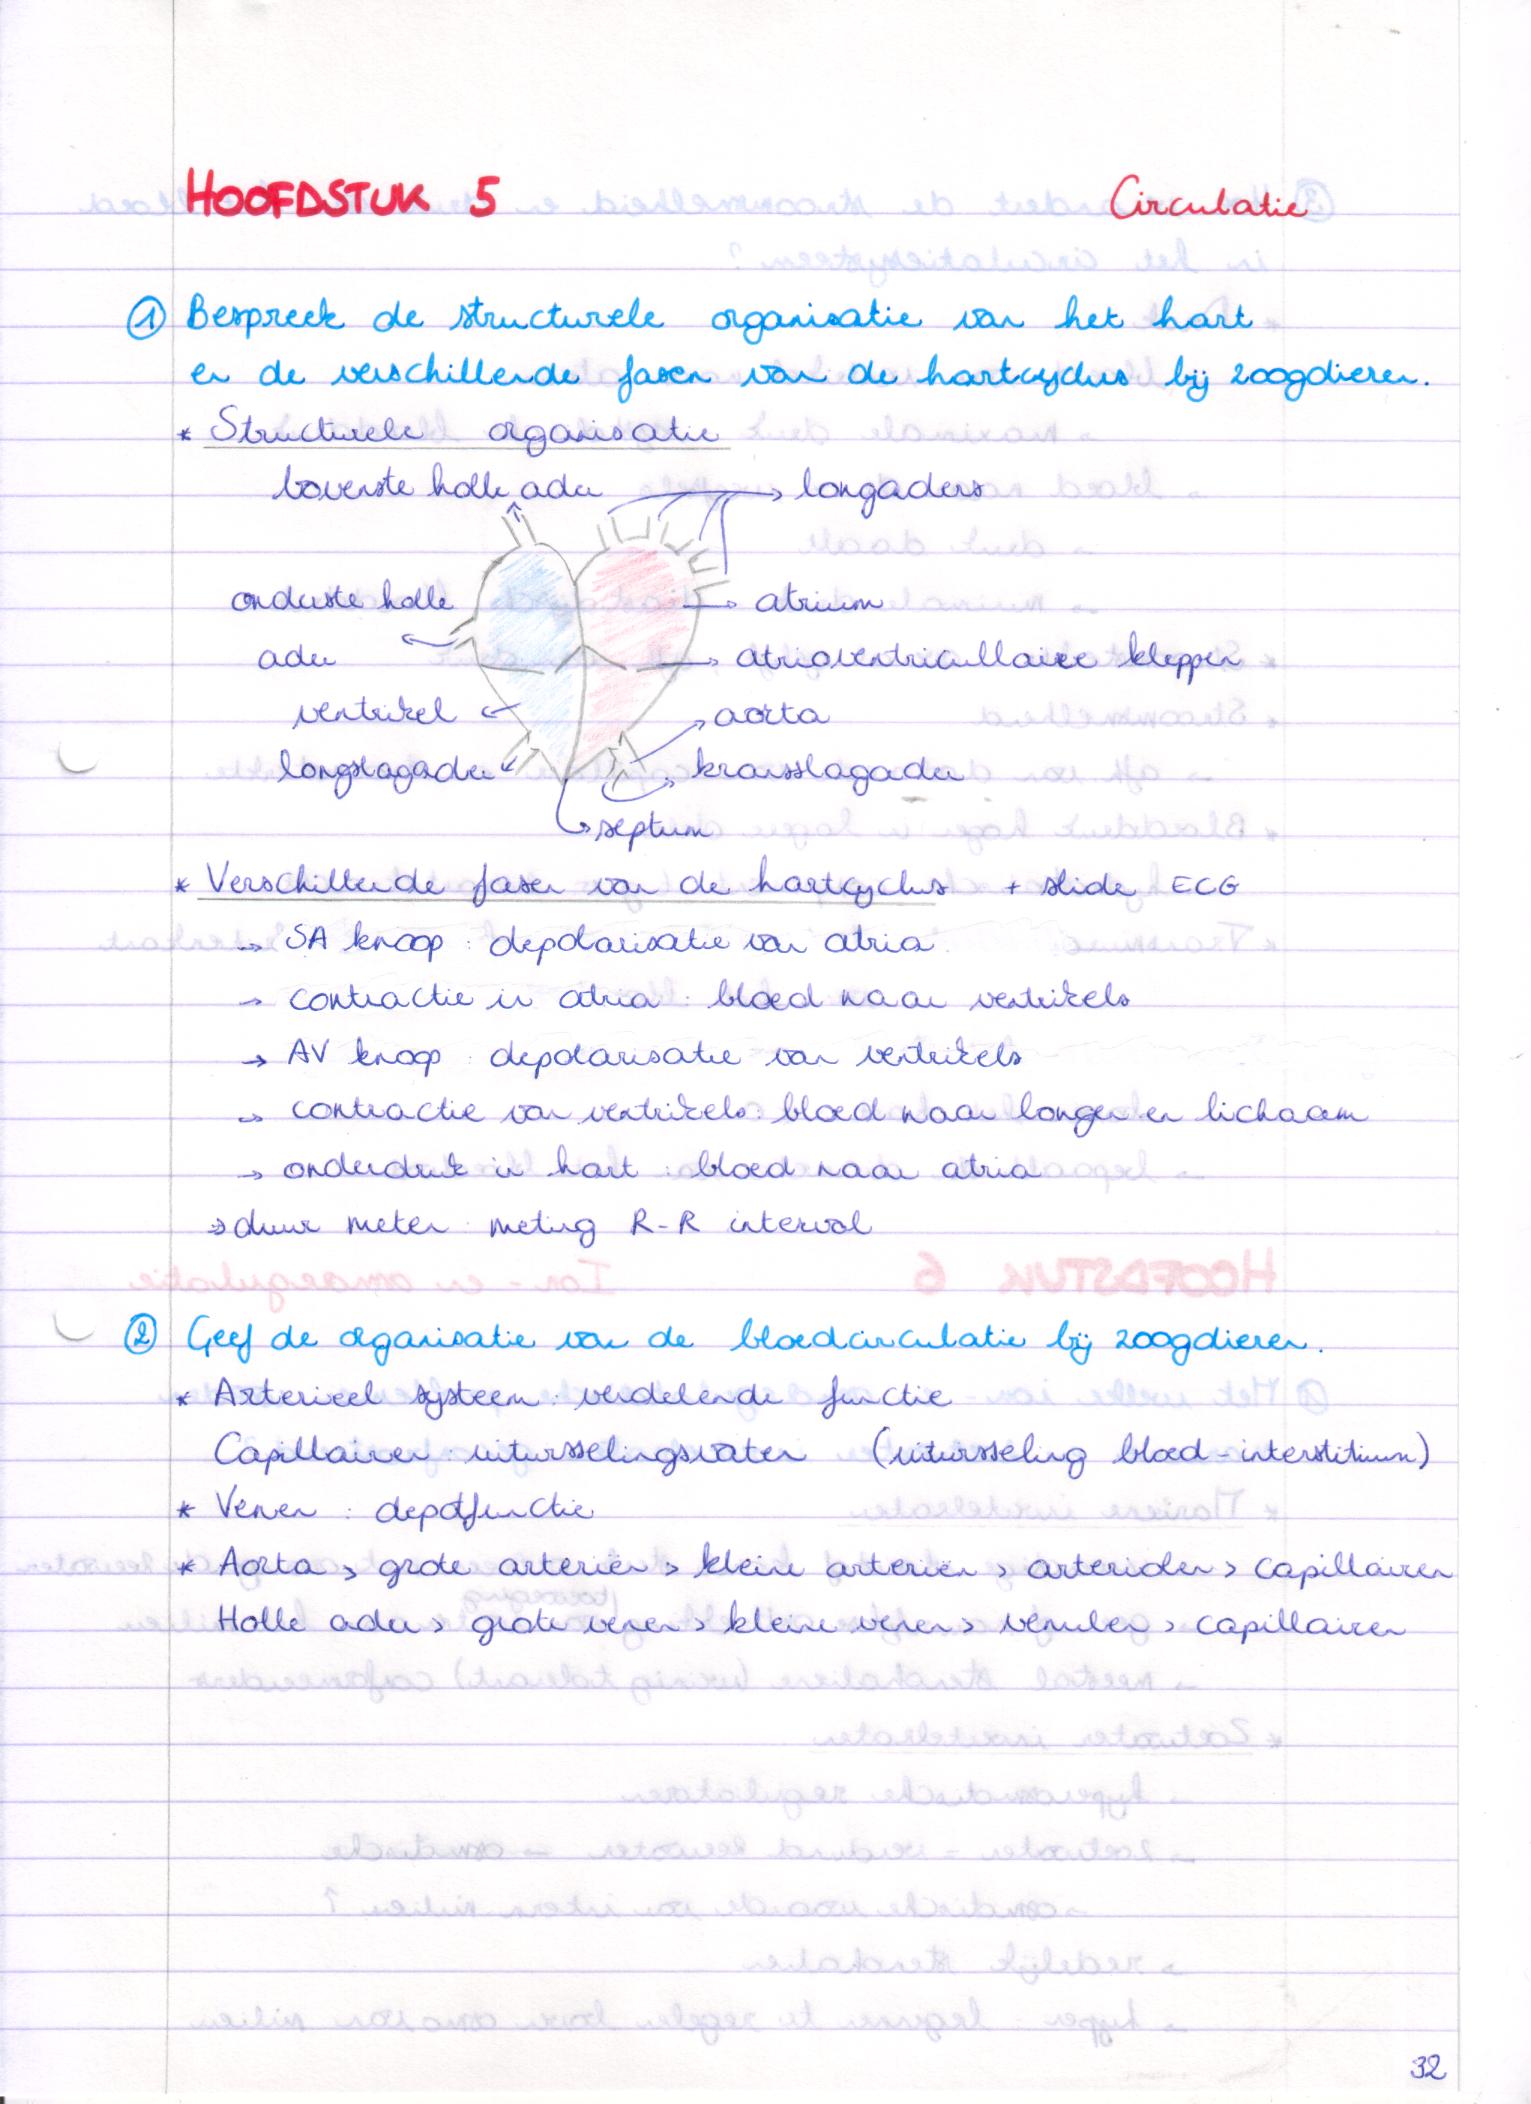 HOOFDSTUK 5 Circulatie
① Bespreek de structurele organisatie van het hart
en de verschillende fasen van de hartcyclus bij zoogdieren.
* Structurele organisatie
bovenste holle ader → longaders
onderste holle → atrium
ader → atrioventricullaire kleppen
ventrikel → aorta
longslagader → kransslagader
→ septum
* Verschillende fasen van de hartcyclus + slide ECG
→ SA knoop : depolarisatie van atria
→ contractie in atria : bloed naar ventrikels
→ AV knoop : depolarisatie van ventrikels
→ contractie van ventrikels : bloed naar longen en lichaam
→ onderdruk in hart : bloed naar atria
⇒ duur meten : meting R-R interval
② Geef de organisatie van de bloedcirculatie bij zoogdieren.
* Arterieel systeem : verdelende functie
Capillairen : uitwisselingsvaten (uitwisseling bloed-interstitium)
* Venen : depotfunctie
* Aorta > grote arteriën > kleine arteriën > arteriolen > capillairen
Holle ader > grote venen > kleine venen > venulen > capillairen
32